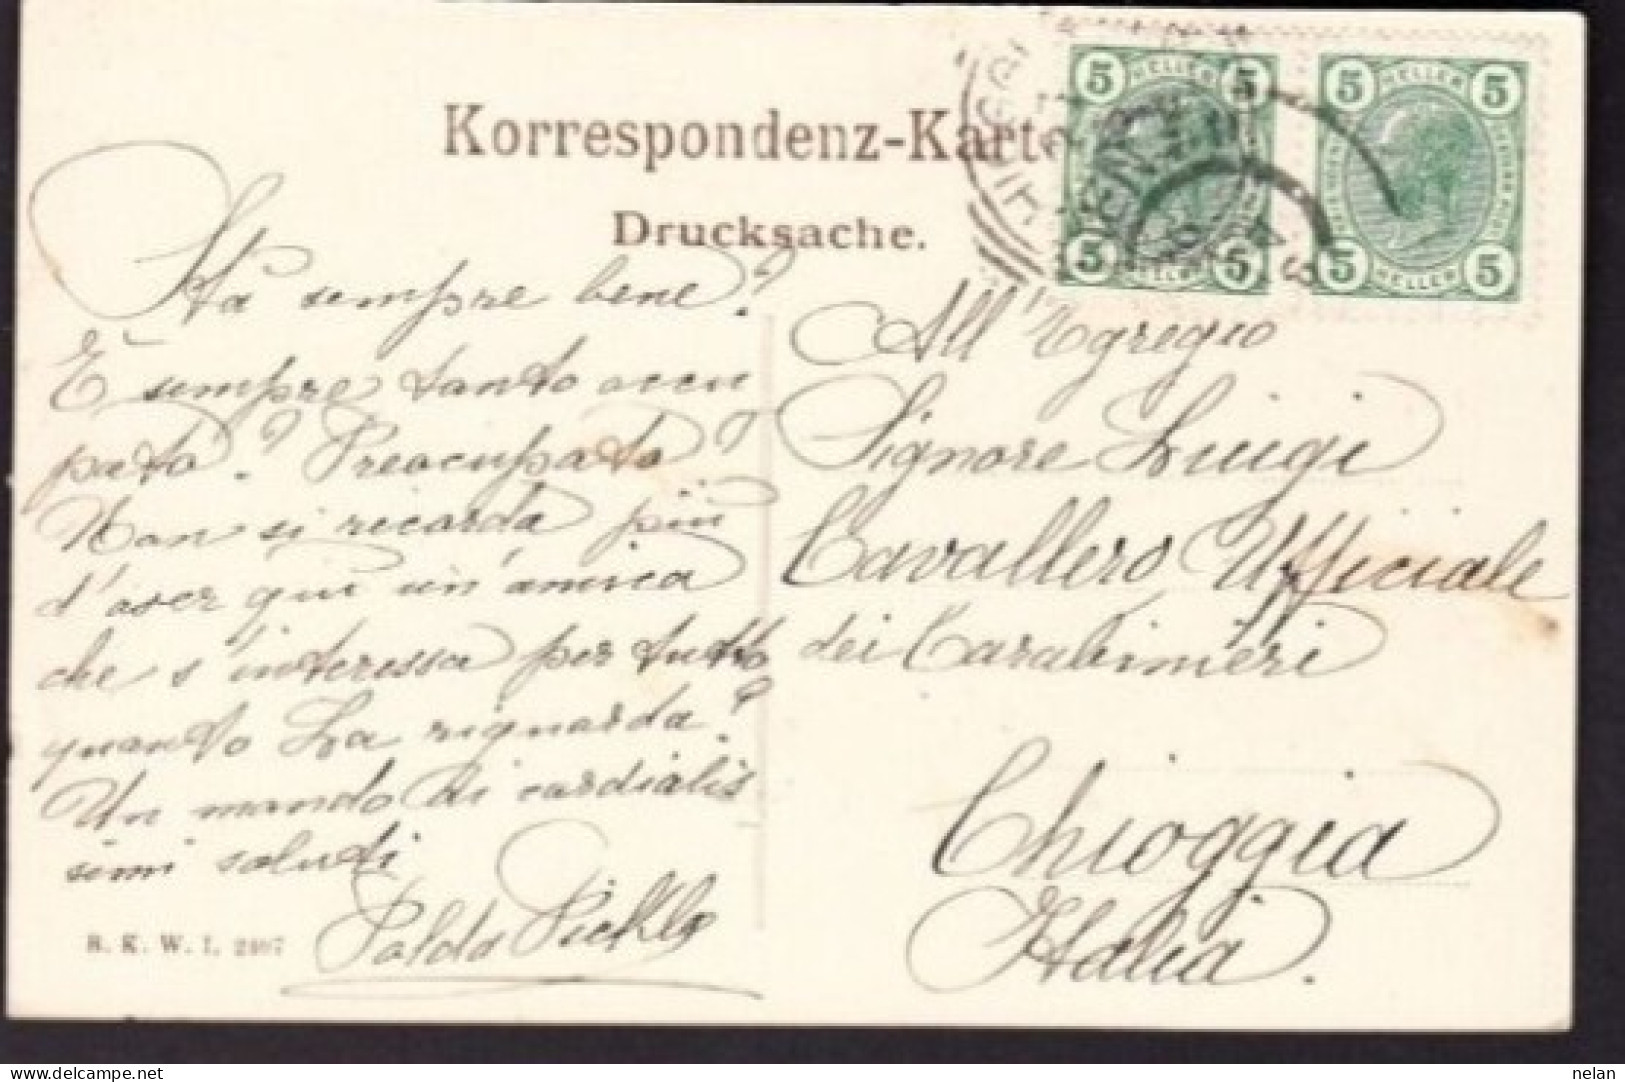 Korrespondenz-Karte
Drucksache.
5 HELLER 5
5 HELLER 5
5 HELLER 5
5 HELLER 5
Sta sempre bene?
È sempre tanto occu
pato? Preocupato?
Non si ricorda più
d'aver qui un'amica
che s'interessa per tutto
quanto La riguarda?
Un mondo di cordialis
simi saluti
B. K. W. I. 2467
All'Egregio
Signore Luigi
Cavallero Ufficiale
dei Carabinieri
Chioggia
Italia.
delcampe.net
nelan